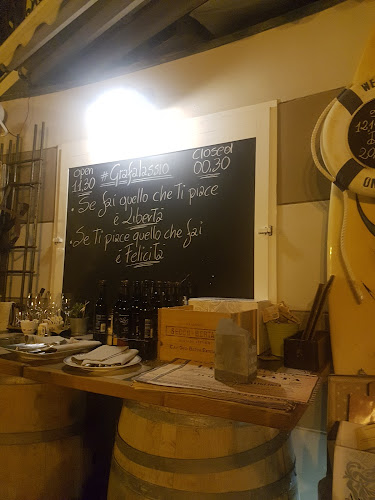 open
11.30
#Grafalassio
Closed
00.30
• Se fai quello che Ti piace
è Libertà
• Se Ti piace quello che fai
è Felicità
WE
ON